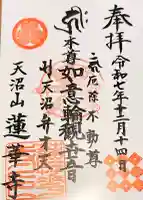 奉拝
令和七年十二月十四日
厄除不動尊
本尊如意輪観世音
天沼弁才天
天沼山
蓮華寺